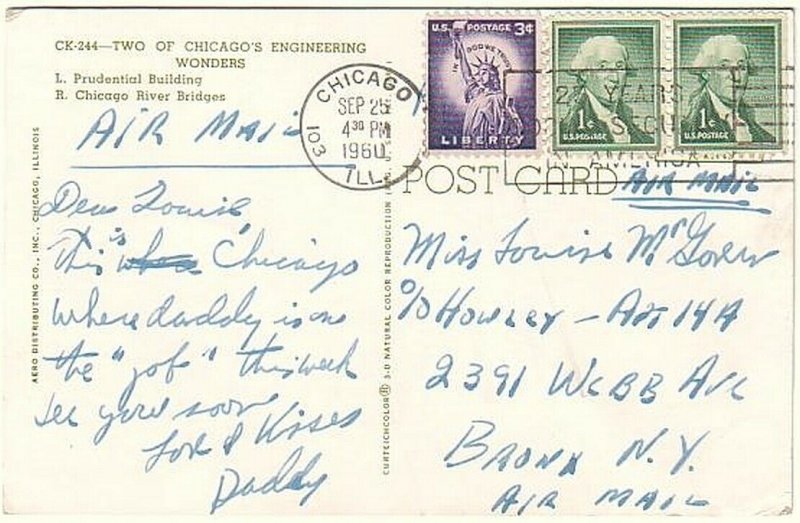 CK-244—TWO OF CHICAGO'S ENGINEERING
WONDERS
L. Prudential Building
R. Chicago River Bridges
AIR MAIL
Dear Louise,
This is Chicago
where daddy is on
the "job" this week
see you soon
Love & Kisses
Daddy
AERO DISTRIBUTING CO., INC., CHICAGO, ILLINOIS
CURTEICHCOLOR® 3-D NATURAL COLOR REPRODUCTION
CHICAGO
SEP 25
4 30 PM
1960
ILL.
103
U.S. POSTAGE 3¢
IN GOD WE TRUST
LIBERTY
1¢
U.S. POSTAGE
1¢
U.S. POSTAGE
25 YEARS
SECU
IN AMERICA
POST CARD
AIR MAIL
Miss Louise McGovern
c/o Howley - Apt 14A
2391 WEBB AVE
BRONX N.Y.
AIR MAIL